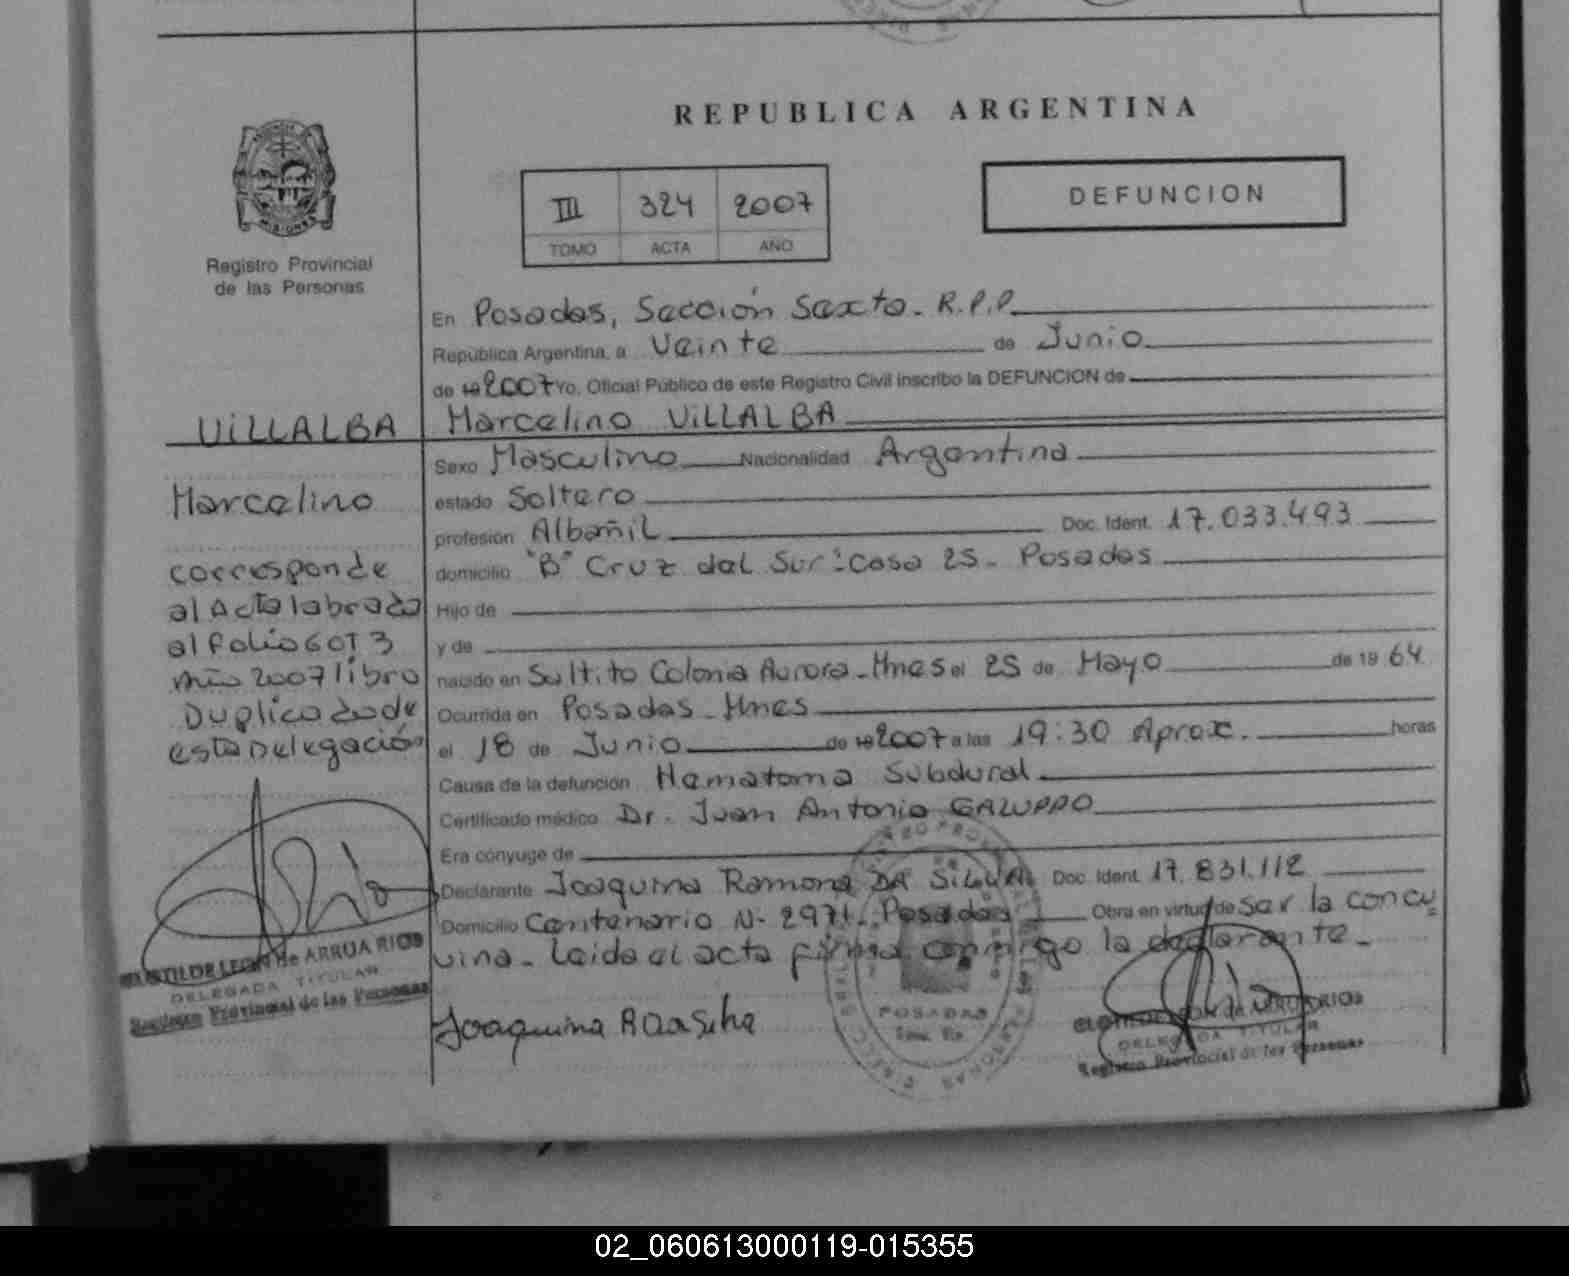 REPUBLICA ARGENTINA
MISIONES
Registro Provincial
de las Personas
III 324 2007
TOMO ACTA AÑO
DEFUNCION
En Posadas, Sección Sexta. R.P.P.
República Argentina, a Veinte de Junio
de 19 2007 Yo, Oficial Público de este Registro Civil inscribo la DEFUNCION de
Marcelino VILLALBA
Sexo Masculino Nacionalidad Argentina
estado Soltero
profesión Albañil Doc. Ident. 17.033.493
domicilio "B" Cruz del Sur: Casa 25 - Posadas
Hijo de
y de
nacido en Saltito Colonia Aurora - Mnes el 25 de Mayo de 19 64
Ocurrida en Posadas - Mnes
el 18 de Junio de 19 2007 a las 19:30 Aprox. horas
Causa de la defunción Hematoma Subdural
Certificado médico Dr. Juan Antonio GALUPPO
Era cónyuge de
Declarante Joaquina Ramona DA SILVA Doc. Ident. 17.831.112
Domicilio Centenario N- 2971 - Posadas Obra en virtud de Ser la concu
vina - Leida el acta firma conmigo la declarante -
Joaquina R Da Silva
VILLALBA
Marcelino
corresponde
al Acta labrada
al folio 60 T 3
Año 2007 libro
Duplicado de
esta Delegación
LEON de ARRUA RIOS
DELEGADA TITULAR
Registro Provincial de las Personas
POSADAS
DELEGADA TITULAR
Registro Provincial de las Personas
02_060613000119-015355